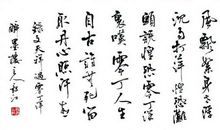 風飄絮身世浮
沉雨打萍惶恐灘
頭說惶恐零丁洋
裏嘆零丁人生
自古誰無死留
取丹心照汗青
錄文天祥過零丁洋